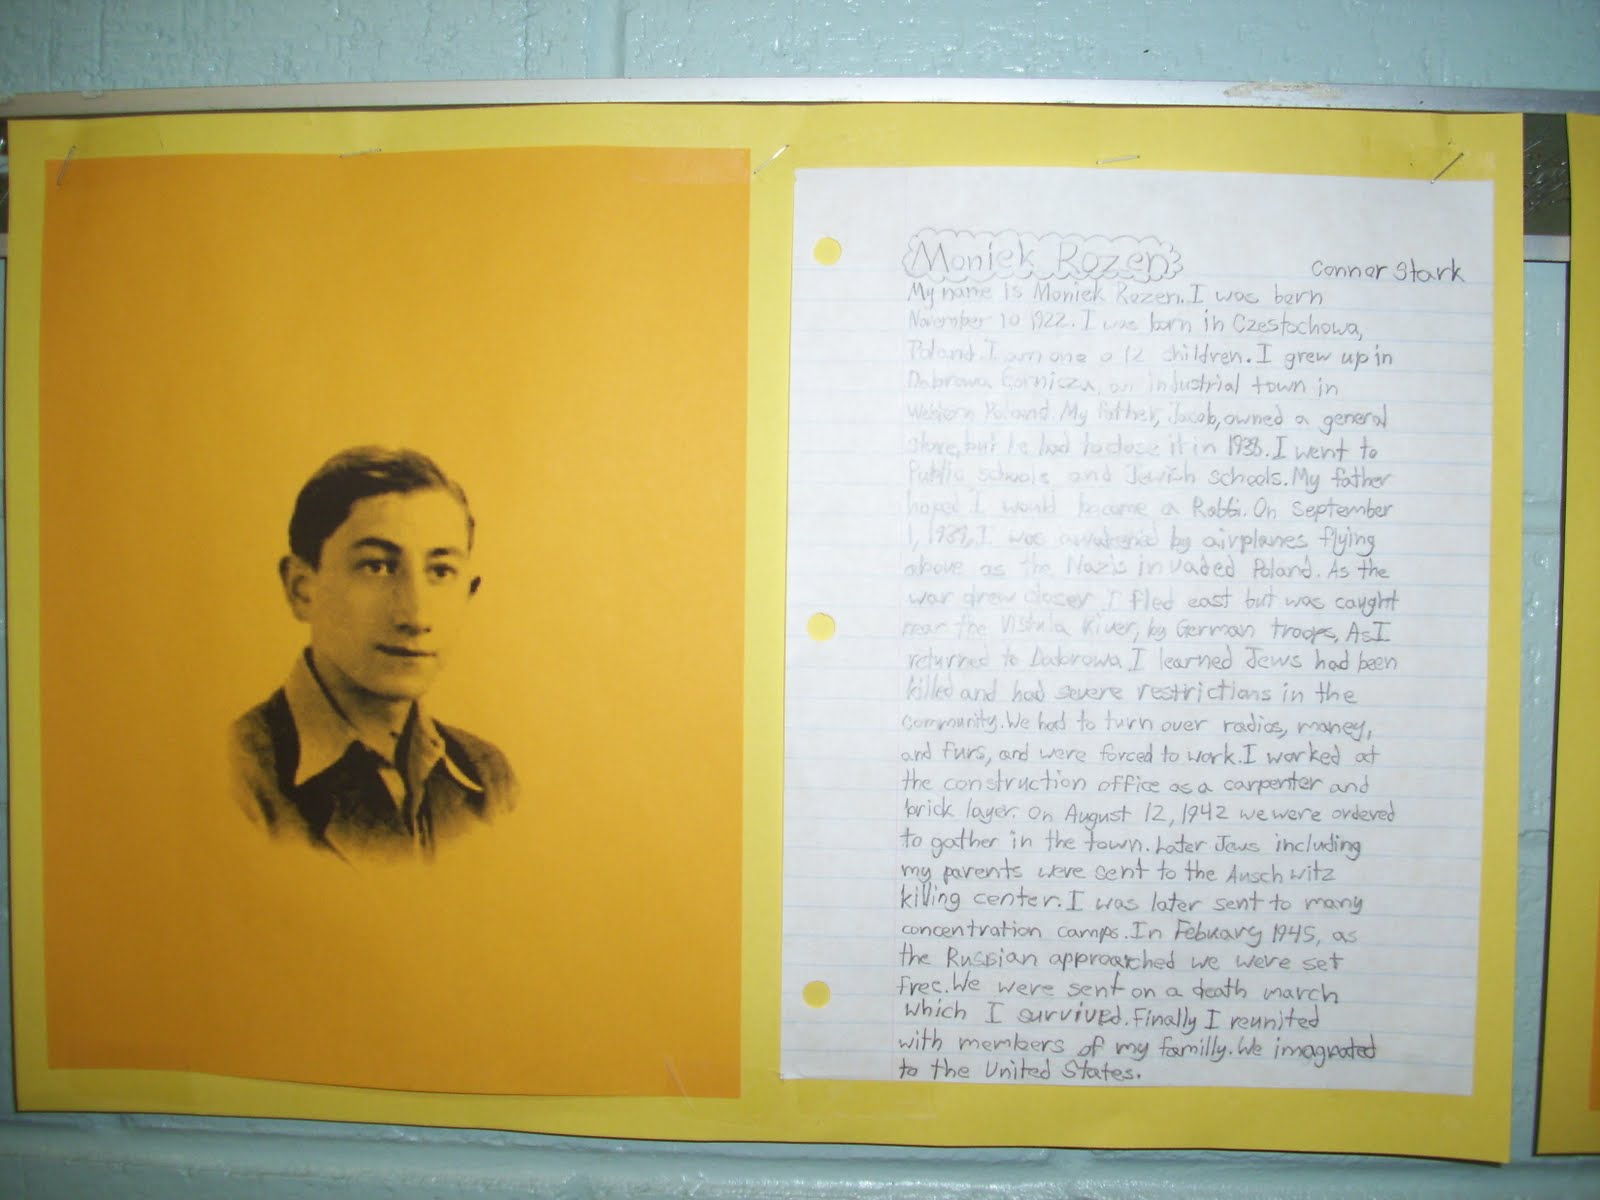 Moniek Rozen
Connor Stark
My name Is Moniek Rozen. I was born
November 10 1922. I was born in Czestochowa,
Poland. I am one o 12 children. I grew up in
Dabrowa Gornicza, an industrial town in
Western Poland. My father, Jacob, owned a general
store, but he had to close it in 1938. I went to
Public schools and Jewish schools. My father
hoped I would become a Rabbi. On September
1, 1939, I was awakened by airplanes flying
above as the Nazis invaded Poland. As the
war drew closer I fled east but was caught
near the Vistula River, by German troops. As I
returned to Dabrowa I learned Jews had been
killed and had severe restrictions in the
community. We had to turn over radios, money,
and furs, and were forced to work. I worked at
the construction office as a carpenter and
brick layer. On August 12, 1942 we were ordered
to gather in the town. Later Jews including
my parents were sent to the Auschwitz
killing center. I was later sent to many
concentration camps. In Febuary 1945, as
the Russian approached we were set
free. We were sent on a death march
which I survived. Finally I reunited
with members of my familly. We imagrated
to the United States.